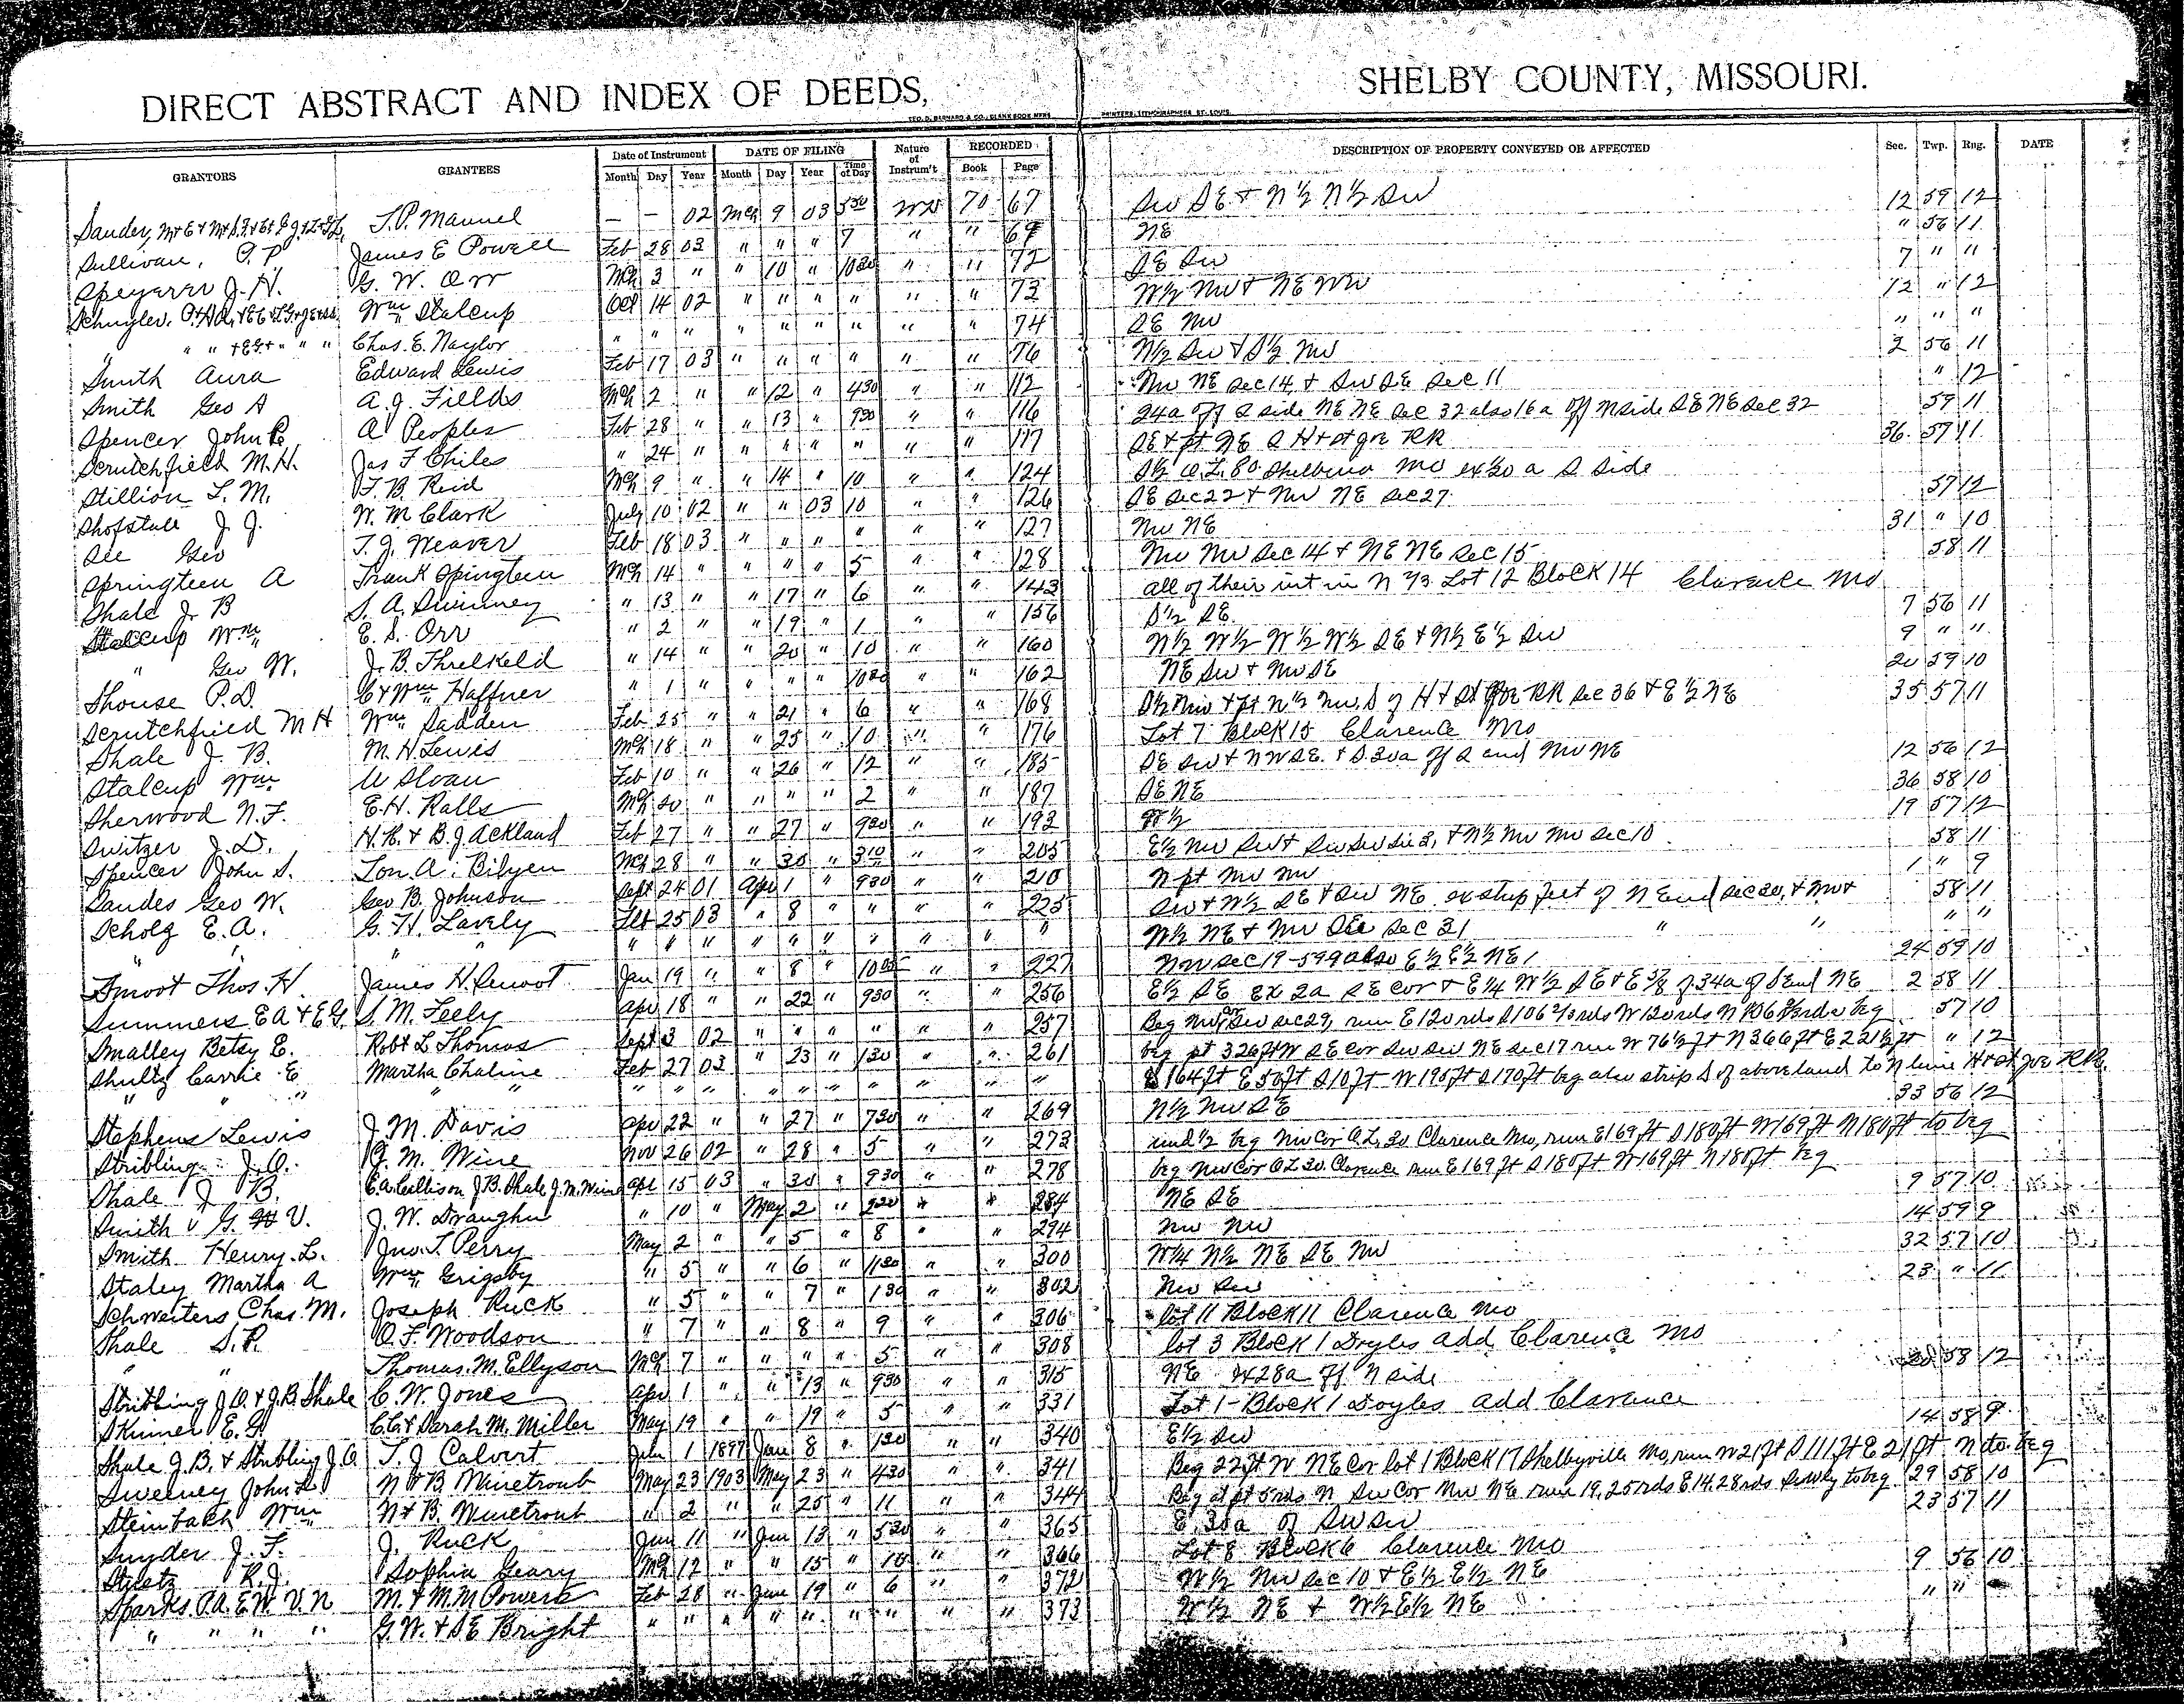 DIRECT ABSTRACT AND INDEX OF DEEDS, SHELBY COUNTY, MISSOURI.
GEO. D. BARNARD & CO., BLANK BOOK MFRS PRINTERS, LITHOGRAPHERS ST. LOUIS
GRANTORS GRANTEES Date of Instrument DATE OF FILING Nature of Instrum't RECORDED DESCRIPTION OF PROPERTY CONVEYED OR AFFECTED Sec. Twp. Rng. DATE
Month Day Year Month Day Year Time of Day Book Page
T. P. Manuel — — 02 Mch 9 03 WD 70 67 SW SE & N½ N½ SW 12 59 12
Sullivan, James E Powell Feb 28 03 " " " 7 " " NE " 56 11
Speyerer J. H. G. W. Orr Mch 3 " " 10 " 1030 " " 72 SE SW 7 " "
Schuyler Wm Stalcup Oct 14 02 " " " " " " 73 W½ NW & NE NW 12 " 12
" " " " " Chas. E. Naylor " " " " " " " " " 74 SE NW " " "
Smith Aura Edward Lewis Feb 17 03 " " " " " " 76 N½ SW & S½ NW 2 56 11
Smith Geo A A. J. Fields Mch 2 " " 12 " 430 " " 112 NW NE Sec 14, & SW SE Sec 11 " 12
Spencer John R A Peoples Feb 28 " " 13 " 930 " " 116 24a off S side NE NE Sec 32 also 16a off N side SE NE Sec 32 59 11
Scrutchfield M. H. Jas F Chiles " 24 " " " " " " " 117 SE & pt NE S H & St Joe RR 36 57 11
Stillion L. M. T. B. Reid Mch 9 " " 14 " 10 " " 124 S½ O.L. 80 Shelbina Mo ex 20 a S Side
Shofstall J. J. W. M Clark July 10 02 " " 03 10 " " 126 SE Sec 22 & NW NE Sec 27 57 12
See Geo T. J. Weaver Feb 18 03 " " " " " " 127 NW NE 31 " 10
Springteen A Frank Spingteen Mch 14 " " " " 5 " " 128 NW NW Sec 14 & NE NE Sec 15 58 11
Shale J. B S. A. Swinney " 13 " " 17 " 6 " " 143 all of their int in N ⅔ Lot 12 Block 14 Clarence Mo
Stalcup Wm E. S. Orr " 2 " " 19 " 1 " " 156 S½ SE 7 56 11
" Geo W. J. B. Threlkeld " 14 " " 20 " 10 " " 160 N½ W½ W½ W½ SE & N½ E½ SW 9 " "
Shouse P. D. C & Wm Haffner " 1 " " " " 1030 " " 162 NE SW & NW SE 20 59 10
Scrutchfield M H Wm Sadden Feb 25 " " 21 " 6 " " 168 S½ NW & Pt N½ NW, S of H & St Joe RR Sec 36 & E½ NE 35 57 11
Shale J. B. M. H. Lewis Mch 18 " " 25 " 10 " " 176 Lot 7 Block 15 Clarence Mo
Stalcup Wm U Sloan Feb 10 " " 26 " 12 " " 185 SE SW & NW SE & S 30a off S end NW NE 12 56 12
Sherwood N. F. E. H. Ralls Mch 20 " " " " 2 " " 187 SE NE 36 58 10
Switzer J. D. H. R. & B. J Ackland Feb 27 " " 27 " 930 " " 193 W½ 19 57 12
Spencer John S. Lon. A. Bilyeu Mch 28 " " 30 " 310 " " 205 E½ NW SW & SW SW Sec 3, & N½ NW NW Sec 10 58 11
Sandes Geo W. Geo B. Johnson Sept 24 01 Apr 1 " 930 " " 210 N pt NW NW 1 " 9
Scholz E. A. G. H. Lavely Feb 25 03 " 8 " " " " 225 SW & W½ SE & SW NE ex strip feet of N End Sec 30, & NW & 58 11
" " " " " " " " " " " " " W½ NE & NW SE Sec 31 " " " "
Smoot Thos. H. James H. Smoot Jan 19 " " 8 " 1005 " " 227 NW Sec 19-59-9 also E½ E½ NE 24 59 10
Summers E A & E G. S. M. Feely Apr 18 " " 22 " 930 " " 256 E½ SE ex 2a SE cor & E¼ W½ SE & E ⅝ of 34a of S end NE 2 58 11
Smalley Betsy E. Robt L Thomas Sept 3 02 " " " " " 257 Beg NW cor SW Sec 29, run E 120 rds S 106 rds W 120 rds N 106 rds beg 57 10
Shultz Carrie E Martha Chaline Feb 27 03 " 23 " 130 " " 261 beg pt 326 ft W SE cor SW SW NE Sec 17 run W 76½ ft N 366 ft E 221½ ft " 12
" " " " " " " " " " " " " " S 164 ft E 50 ft S 10 ft W 195 ft S 170 ft beg also strip S of above land to N line H & St Joe RR.
Stephens Lewis J. M. Davis Apr 22 " " 27 " 730 " " 269 N½ NW SE 33 56 12
Stribling J. O. G. M. Wine Nov 26 02 " 28 " 5 " " 273 und ½ beg NW Cor O.L. 30 Clarence Mo, run E 169 ft S 180 ft W 169 ft N 180 ft to beg
Shale J B. E. A. Collison J. B. Shale J. M. Wine Apr 15 03 " 30 " 930 " " 278 beg NW Cor O L 30 Clarence run E 169 ft S 180 ft W 169 ft N 180 ft beg
Smith G. V. J. W. Draughn " 10 " May 2 " 920 " " 284 NE SE 9 57 10
Smith Henry L. Jno. T. Perry May 2 " " 5 " 8 " " 294 NW NW 14 59 9
Staley Martha A Wm Grigsby " 5 " " 6 " 1130 " " 300 W¼ N½ NE SE NW 32 57 10
Schweiters Chas. M. Joseph Ruck " 5 " " 7 " 130 " " 302 NW SW 23 " 11
Shale S. R. O. F. Woodson " 7 " " 8 " 9 " " 306 lot 11 Block 11 Clarence Mo
" " Thomas. M. Ellyson Mch 7 " " " " 5 " " 308 lot 3 Block 1 Doyles add Clarence Mo
Stribling J. O. & J. B. Shale C. W. Jones Apr 1 " " 13 " 930 " " 315 NE ex 28a off N side 58 12
Skinner E. G. C. C. & Sarah M. Miller May 19 " " 19 " 5 " " 331 Lot 1 - Block 1 Doyles add Clarence
Shale J. B. & Stribling J. O. T. J. Calvert 1 1897 June 8 " 130 " " 340 E½ SW 14 58 9
Sweeney John L N & B. Winetroub May 23 1903 May 23 " 430 " " 341 Beg 22 ft W NE Cor lot 1 Block 17 Shelbyville Mo, run W 21 ft S 111 ft E 21 ft N to beg
Steinbach Wm N & B. Winetroub " 2 " " 25 " 11 " " 344 Beg at pt 5 rds N SW Cor NW NE run 19.25 rds E 14.28 rds SWly to beg 29 58 10
Snyder J. F. J. Ruck Jun 11 " Jun 13 " 530 " " 365 E 30a of SW SW 23 57 11
Streetz R. J. Sophia Geary Mch 12 " " 15 " 10 " " 366 Lot 8 Block 6 Clarence Mo
Sparks P. A. E. W. V. N M. & M. M Powers Feb 28 " June 19 " 6 " " 372 W½ NW Sec 10 & E½ E½ NE 9 56 10
" " " " G. W. & S E Bright " " " " " " " " " 373 W½ NE & W½ E½ NE " "